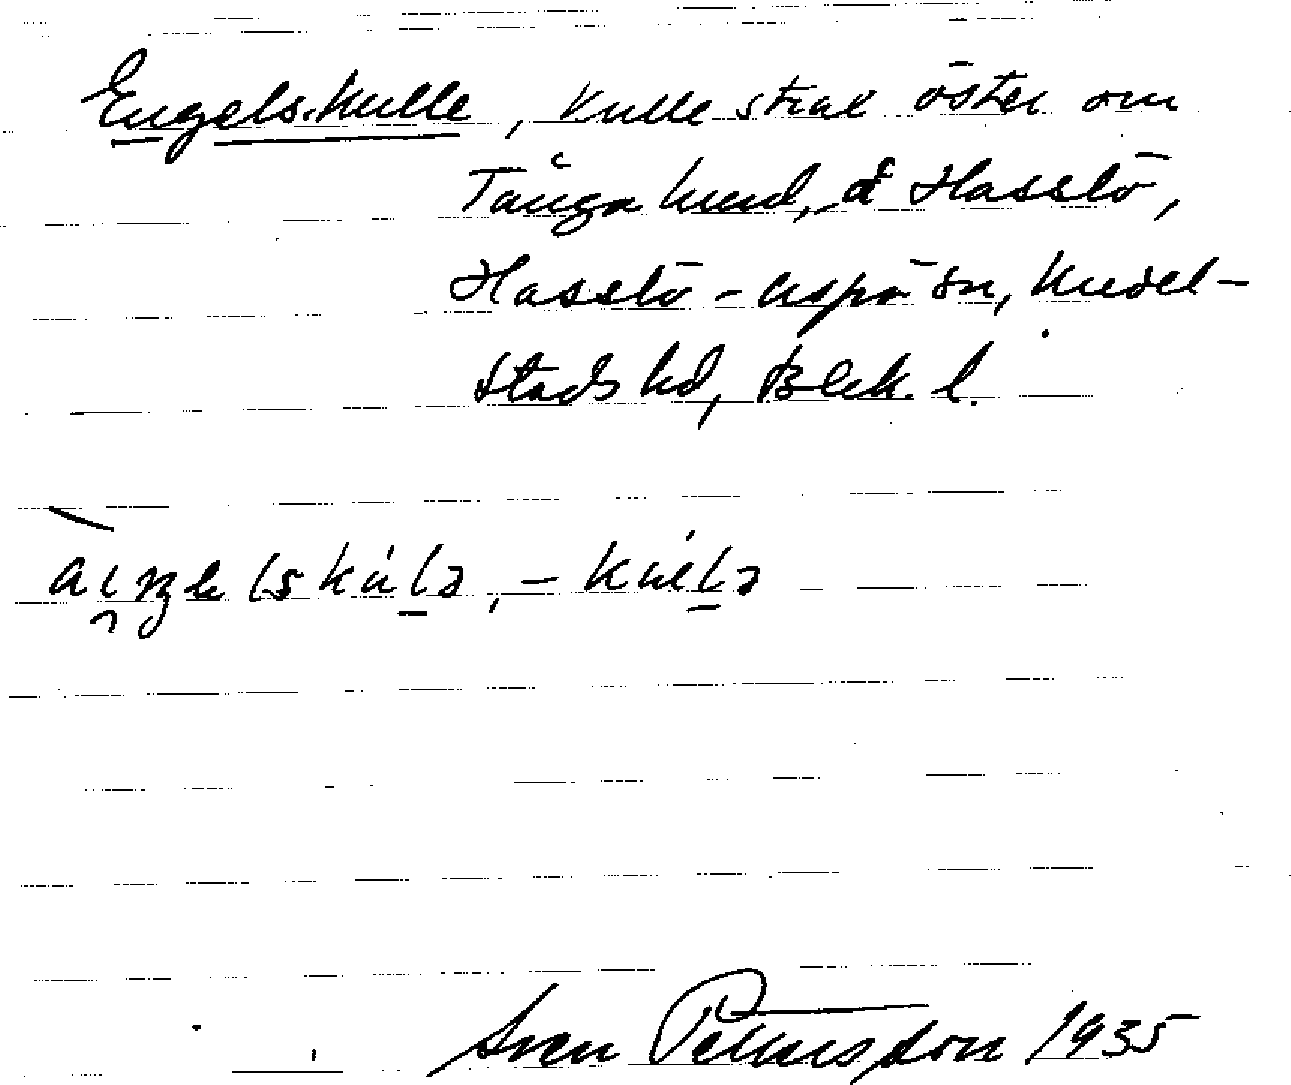 Engelskulle, kulle strax öster om
Tånga hund, å Hasslö,
Hasslö-Aspö sn, Medel-
stads hd, Blek. l.
Sven Pettersson 1935